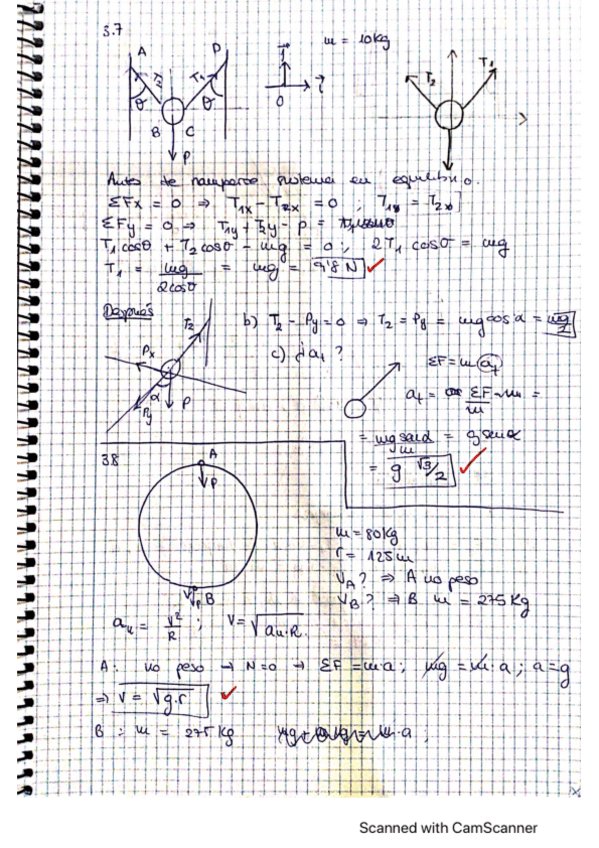 3.7
m = 10kg
A D
T₂ T₁
θ θ
B C
P
j
i
O
T₂ T₁
Antes de romperse sistema en equilibrio.
ΣFx = 0 ⇒ T₁x - T₂x = 0 ; T₁x = T₂x]
ΣFy = 0 ⇒ T₁y + T₂y - P =
T₁cosθ + T₂cosθ - mg = 0 ; 2T₁ cosθ = mg
T₁ = mg/2cosθ = mg = 9'8 N
Después
T₂
Px
α
Py
P
b) T₂ - Py = 0 ⇒ T₂ = Py = mg cosα = mg/2
c) ¿a₁?
ΣF = m a_t
a_t = ΣF/m =
= mg senα/m = g senα
= g √3/2
38
A
P
B
P
m = 80kg
r = 125m
V_A? ⇒ A no peso
V_B? ⇒ B m = 275kg
a_n = v²/R ; V = √a_n·R.
A: no peso → N=0 → ΣF = m·a ; mg = m·a ; a=g
⇒ V = √g.r
B : m = 275 kg
Scanned with CamScanner